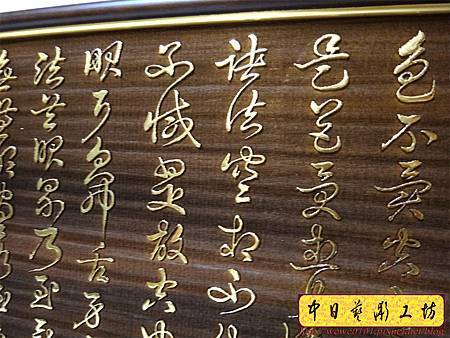 色不異空
是色受想
諸法空相不生
不減是故空中
眼耳鼻舌身
法無眼界乃至
中日藝彫工坊